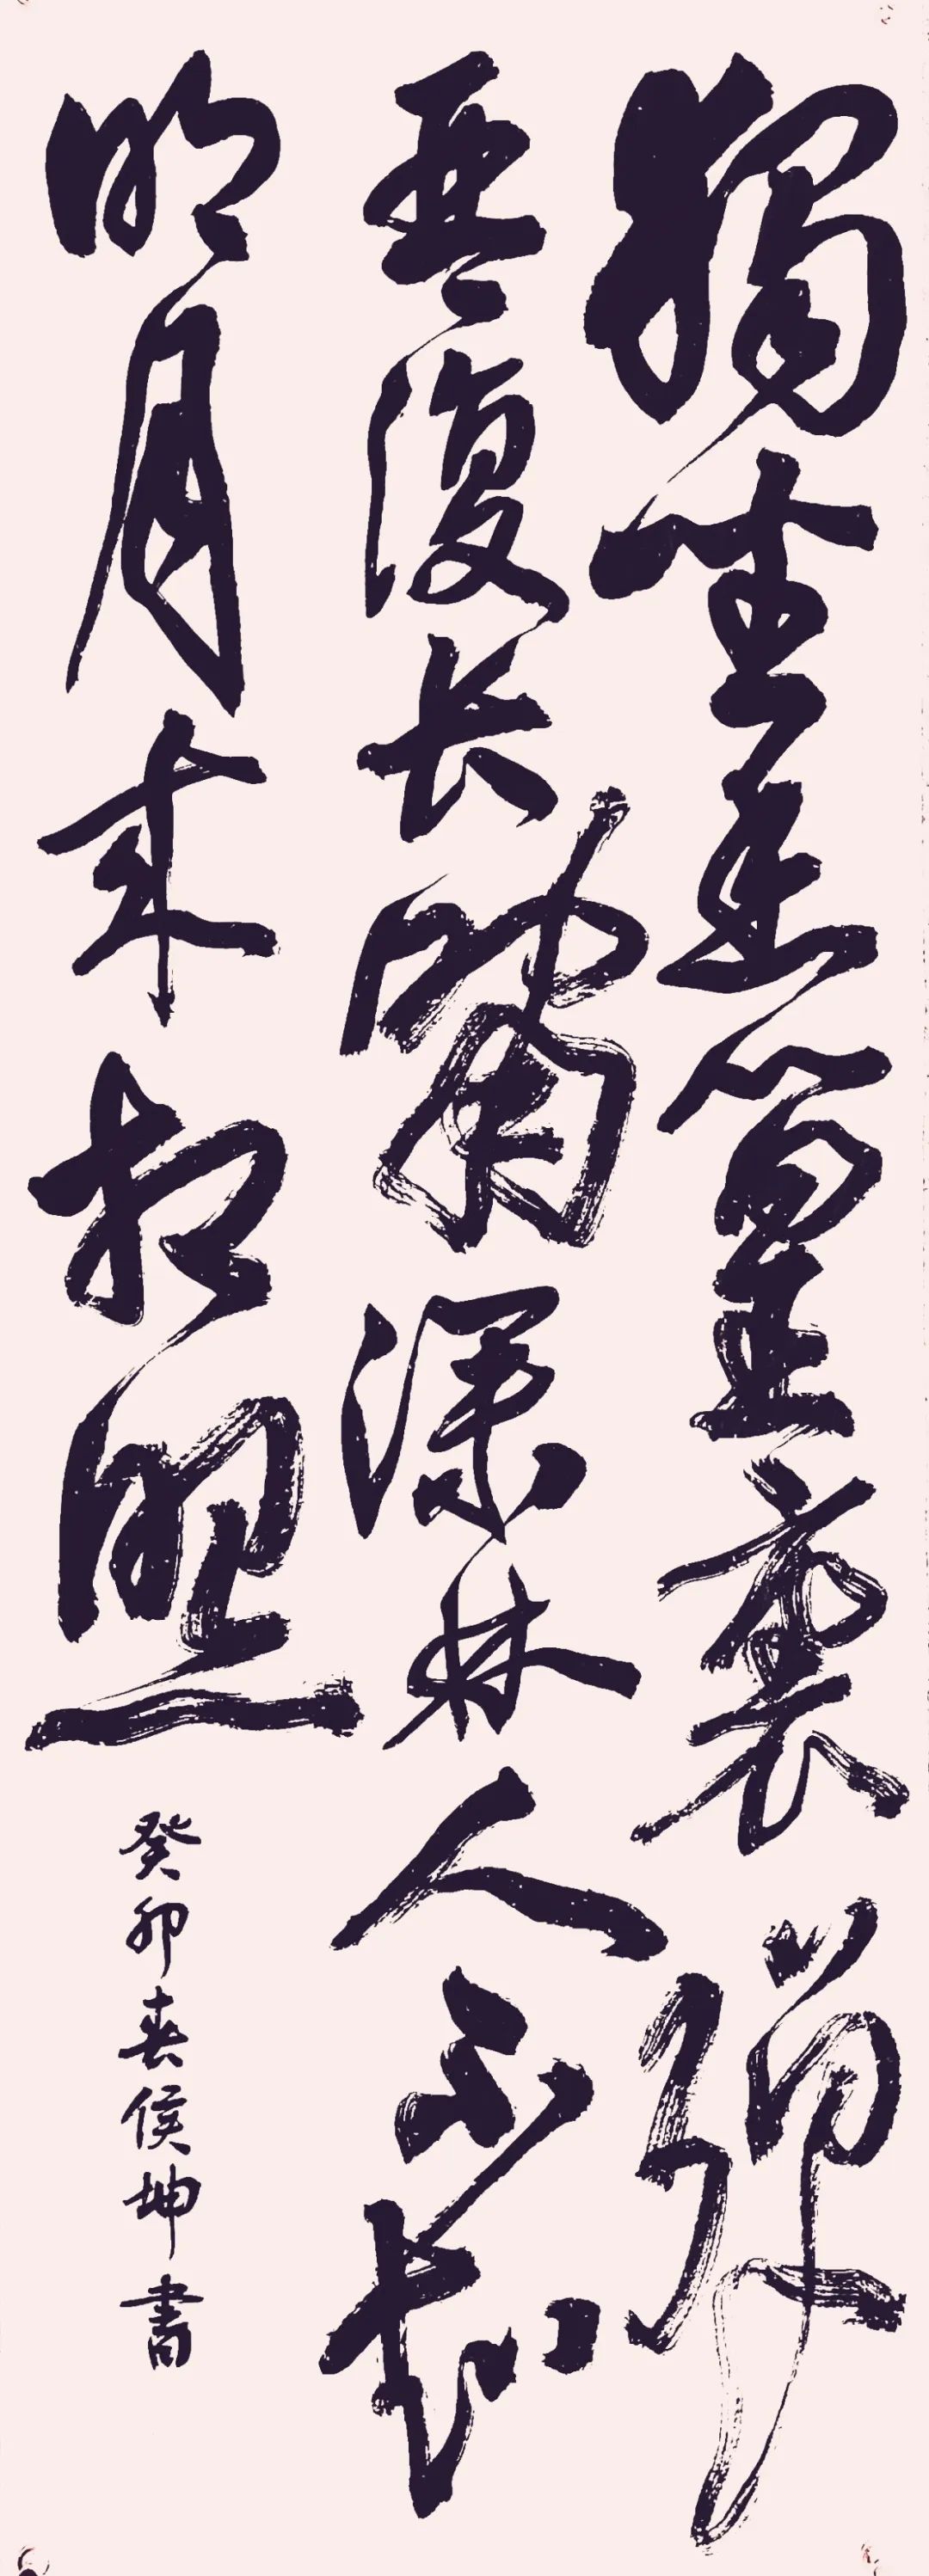 獨坐幽篁裏彈
琴復长嘯深林人不知
明月来相照
癸卯春侯坤書